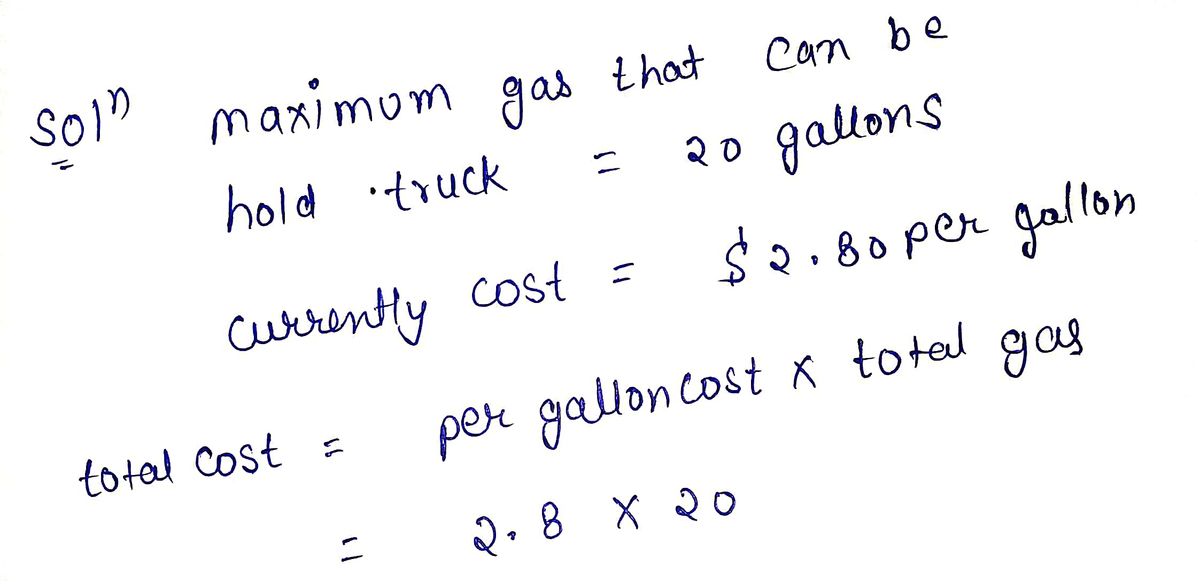 Solⁿ maximum gas that can be
hold truck = 20 gallons
currently cost = $ 2.80 per gallon
total cost = per gallon cost x total gas
= 2.8 x 20